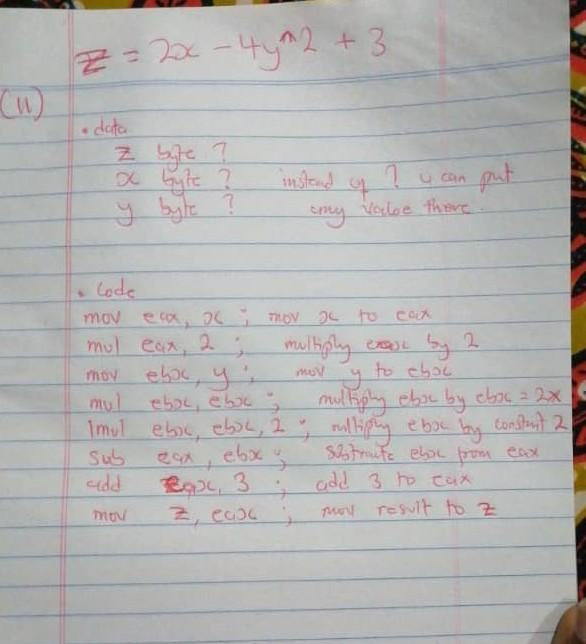 z = 2x - 4y^2 + 3
(11)
.data
z byte ?
x byte ? instead of ? u can put
y byte ? any value there.
.Code
mov eax, x ; mov x to eax
mul eax, 2 ; multiply eax by 2
mov ebx, y ; mov y to ebx
mul ebx, ebx ; multiply ebx by ebx = 2x
Imul ebx, ebx, 2 ; multiply ebx by constant 2
Sub eax, ebx ; Subtracte ebx from eax
add eax, 3 ; add 3 to eax
mov z, eax ; mov result to z